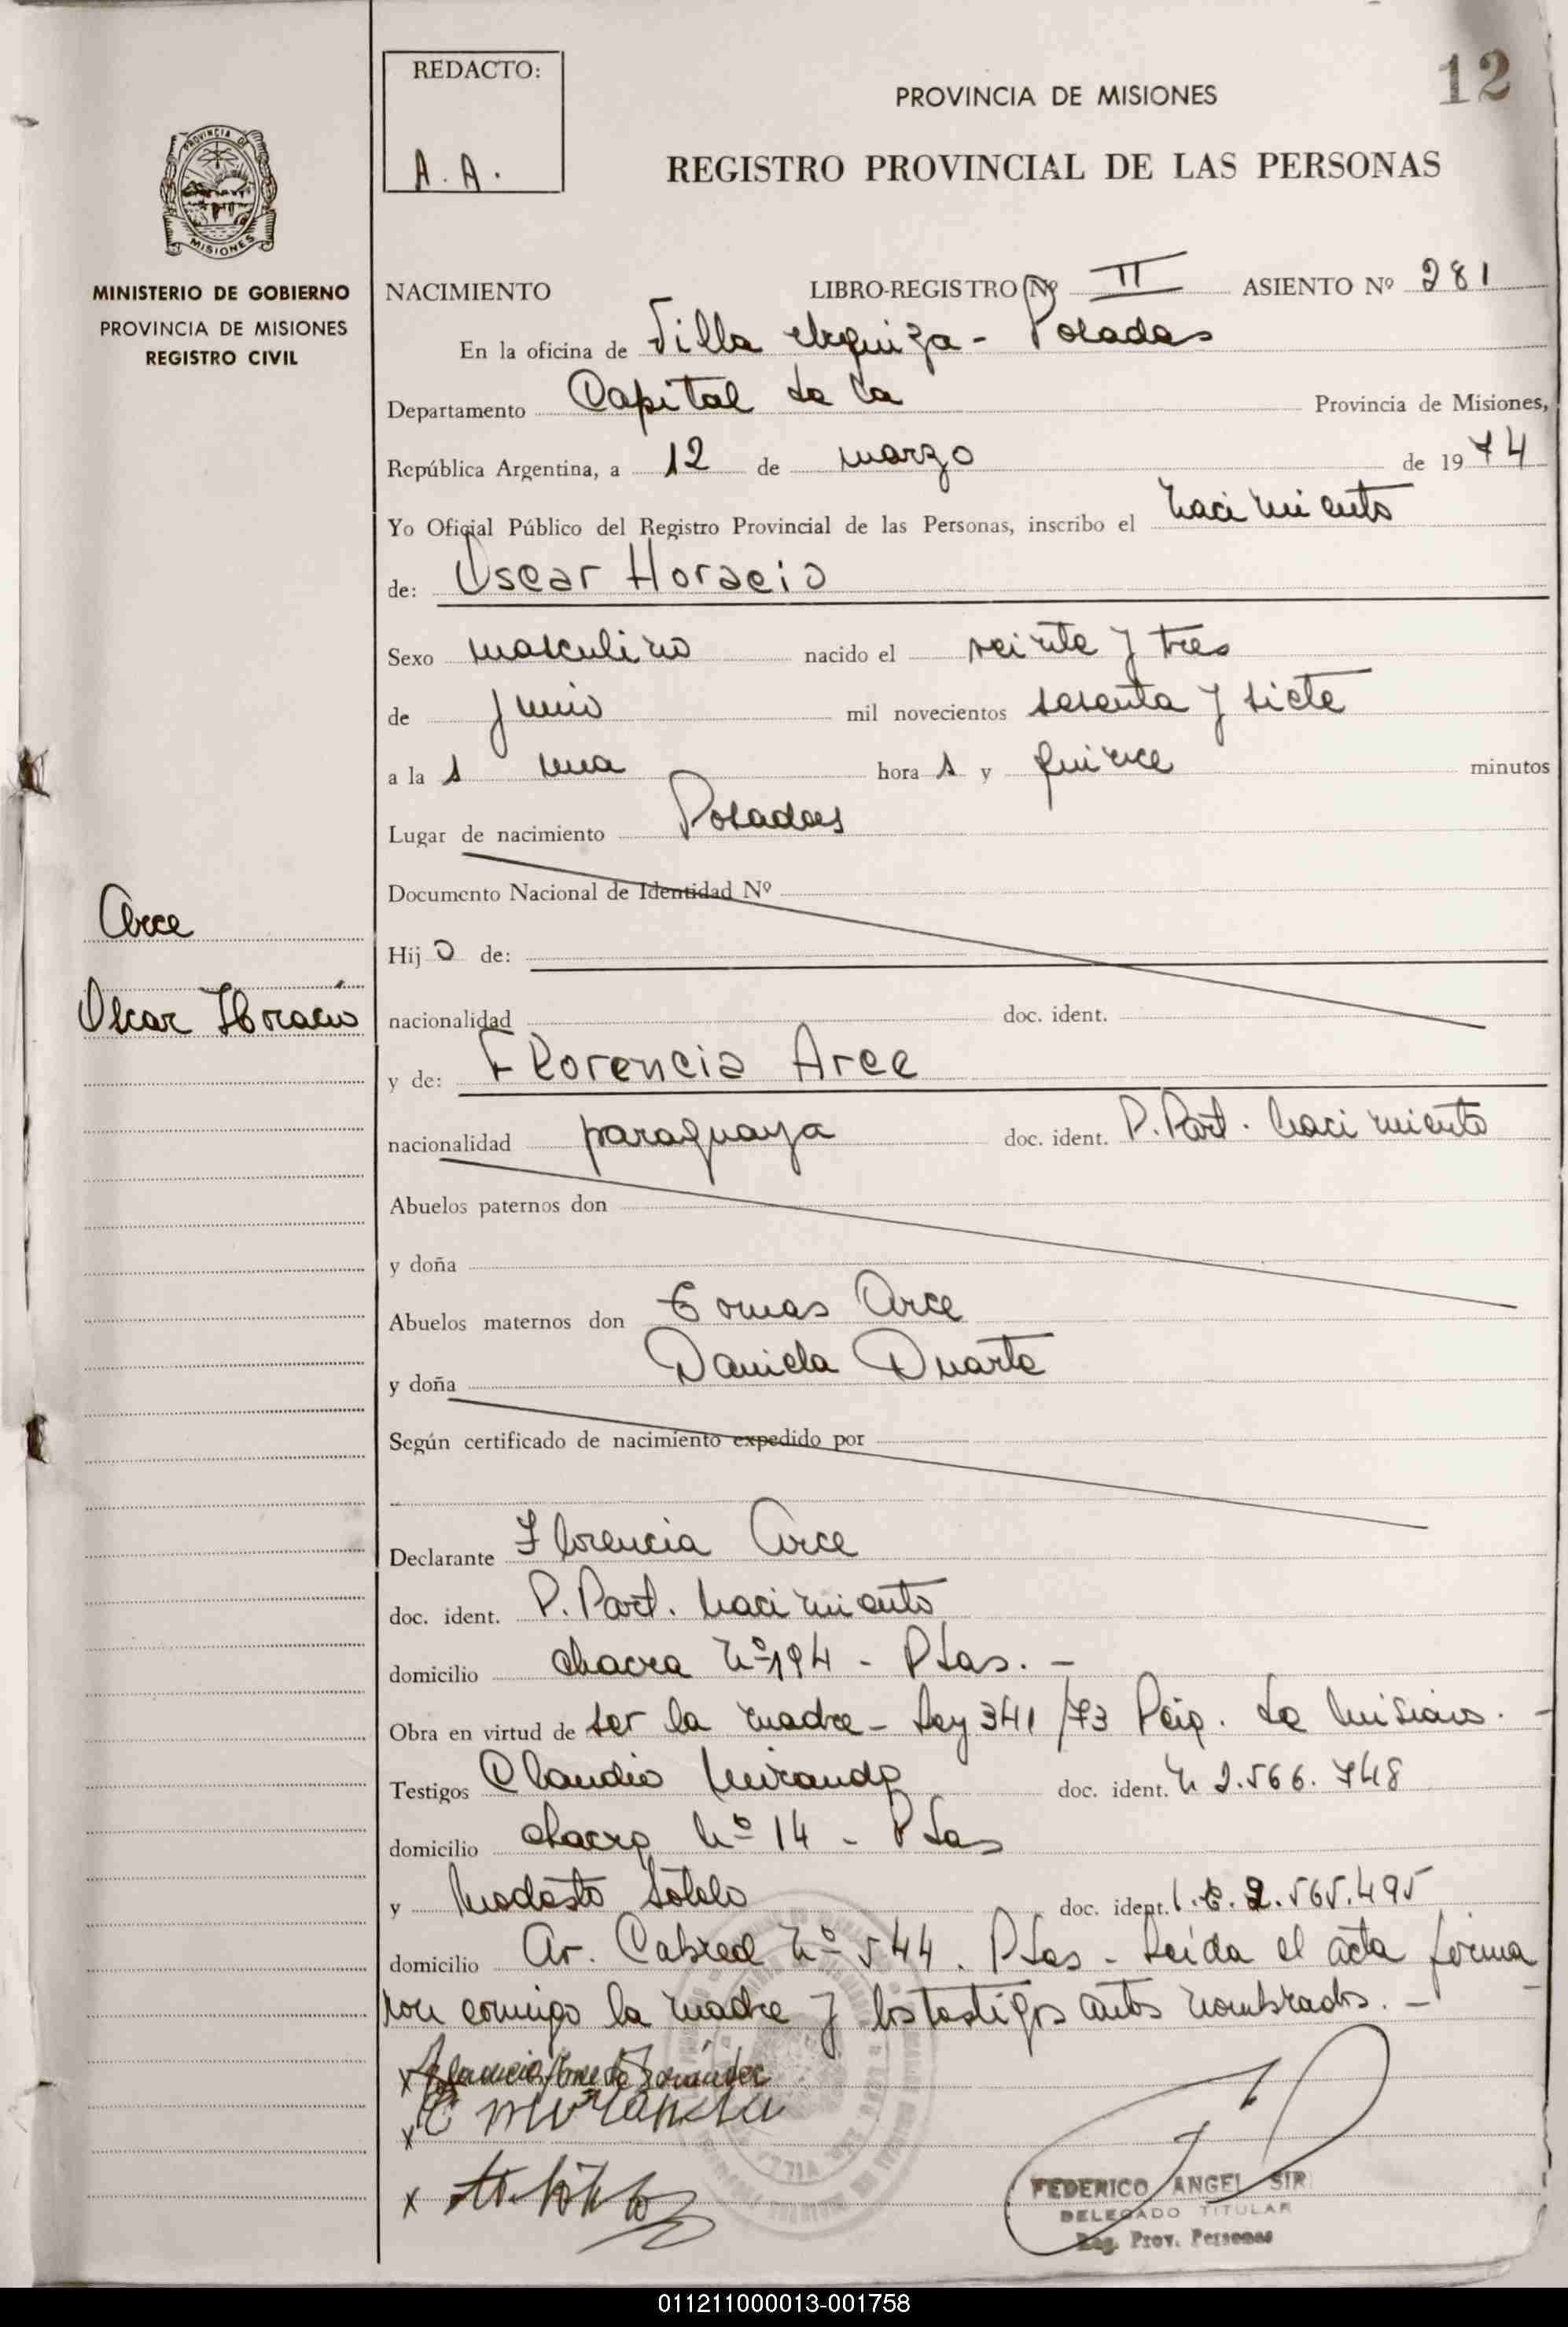 12
REDACTO:
A. A.
PROVINCIA DE MISIONES
REGISTRO PROVINCIAL DE LAS PERSONAS
PROVINCIA DE
MISIONES
MINISTERIO DE GOBIERNO
PROVINCIA DE MISIONES
REGISTRO CIVIL
NACIMIENTO LIBRO-REGISTRO Nº II ASIENTO Nº 281
En la oficina de Villa Urquiza - Posadas
Departamento Capital de la Provincia de Misiones,
República Argentina, a 12 de marzo de 1974
Yo Oficial Público del Registro Provincial de las Personas, inscribo el nacimiento
de: Oscar Horacio
Sexo masculino nacido el veinte y tres
de junio mil novecientos sesenta y siete
a la s una hora s y quince minutos
Lugar de nacimiento Posadas
Documento Nacional de Identidad Nº
Arce
Hij o de:
Oscar Horacio
nacionalidad doc. ident.
y de: Florencia Arce
nacionalidad paraguaya doc. ident. P. Part. nacimiento
Abuelos paternos don
y doña
Abuelos maternos don Tomas Arce
y doña Daniela Duarte
Según certificado de nacimiento expedido por
Declarante Florencia Arce
doc. ident. P. Part. nacimiento
domicilio chacra Nº 194 - Pdas. -
Obra en virtud de ser la madre - Ley 341/73 de Misiones. -
Testigos Claudio Miranda doc. ident. 2.566.748
domicilio chacra Nº 14 - Pdas
y Modesto Sotelo doc. ident. 2.565.495
domicilio Av. Cabred Nº 544. Pdas - Leída el acta firma
ron conmigo la madre y los testigos antes nombrados. -
x
x
x
FEDERICO ANGEL SIR
DELEGADO TITULAR
Reg. Prov. Personas
011211000013-001758